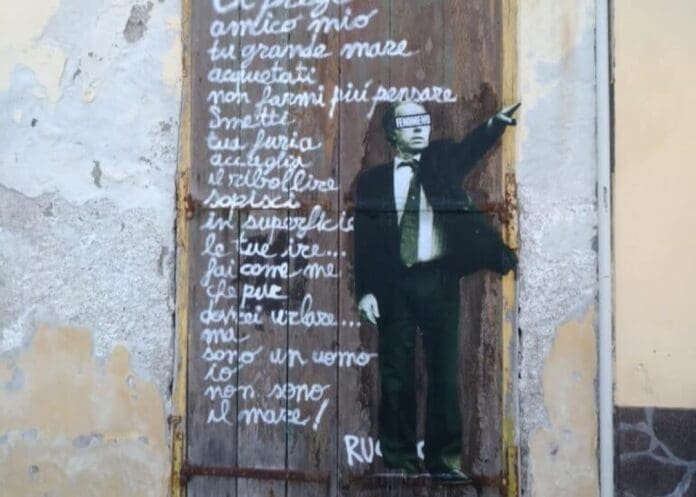 Ti prego
amico mio
tu grande mare
acquetati
non farmi più pensare
Smetti
tua furia
accoglia
il ribollire
sopisci
in superficie
le tue ire...
fai come me
che pur
dovrei urlare...
ma
sono un uomo
io
non sono
il mare!
FENOMENO